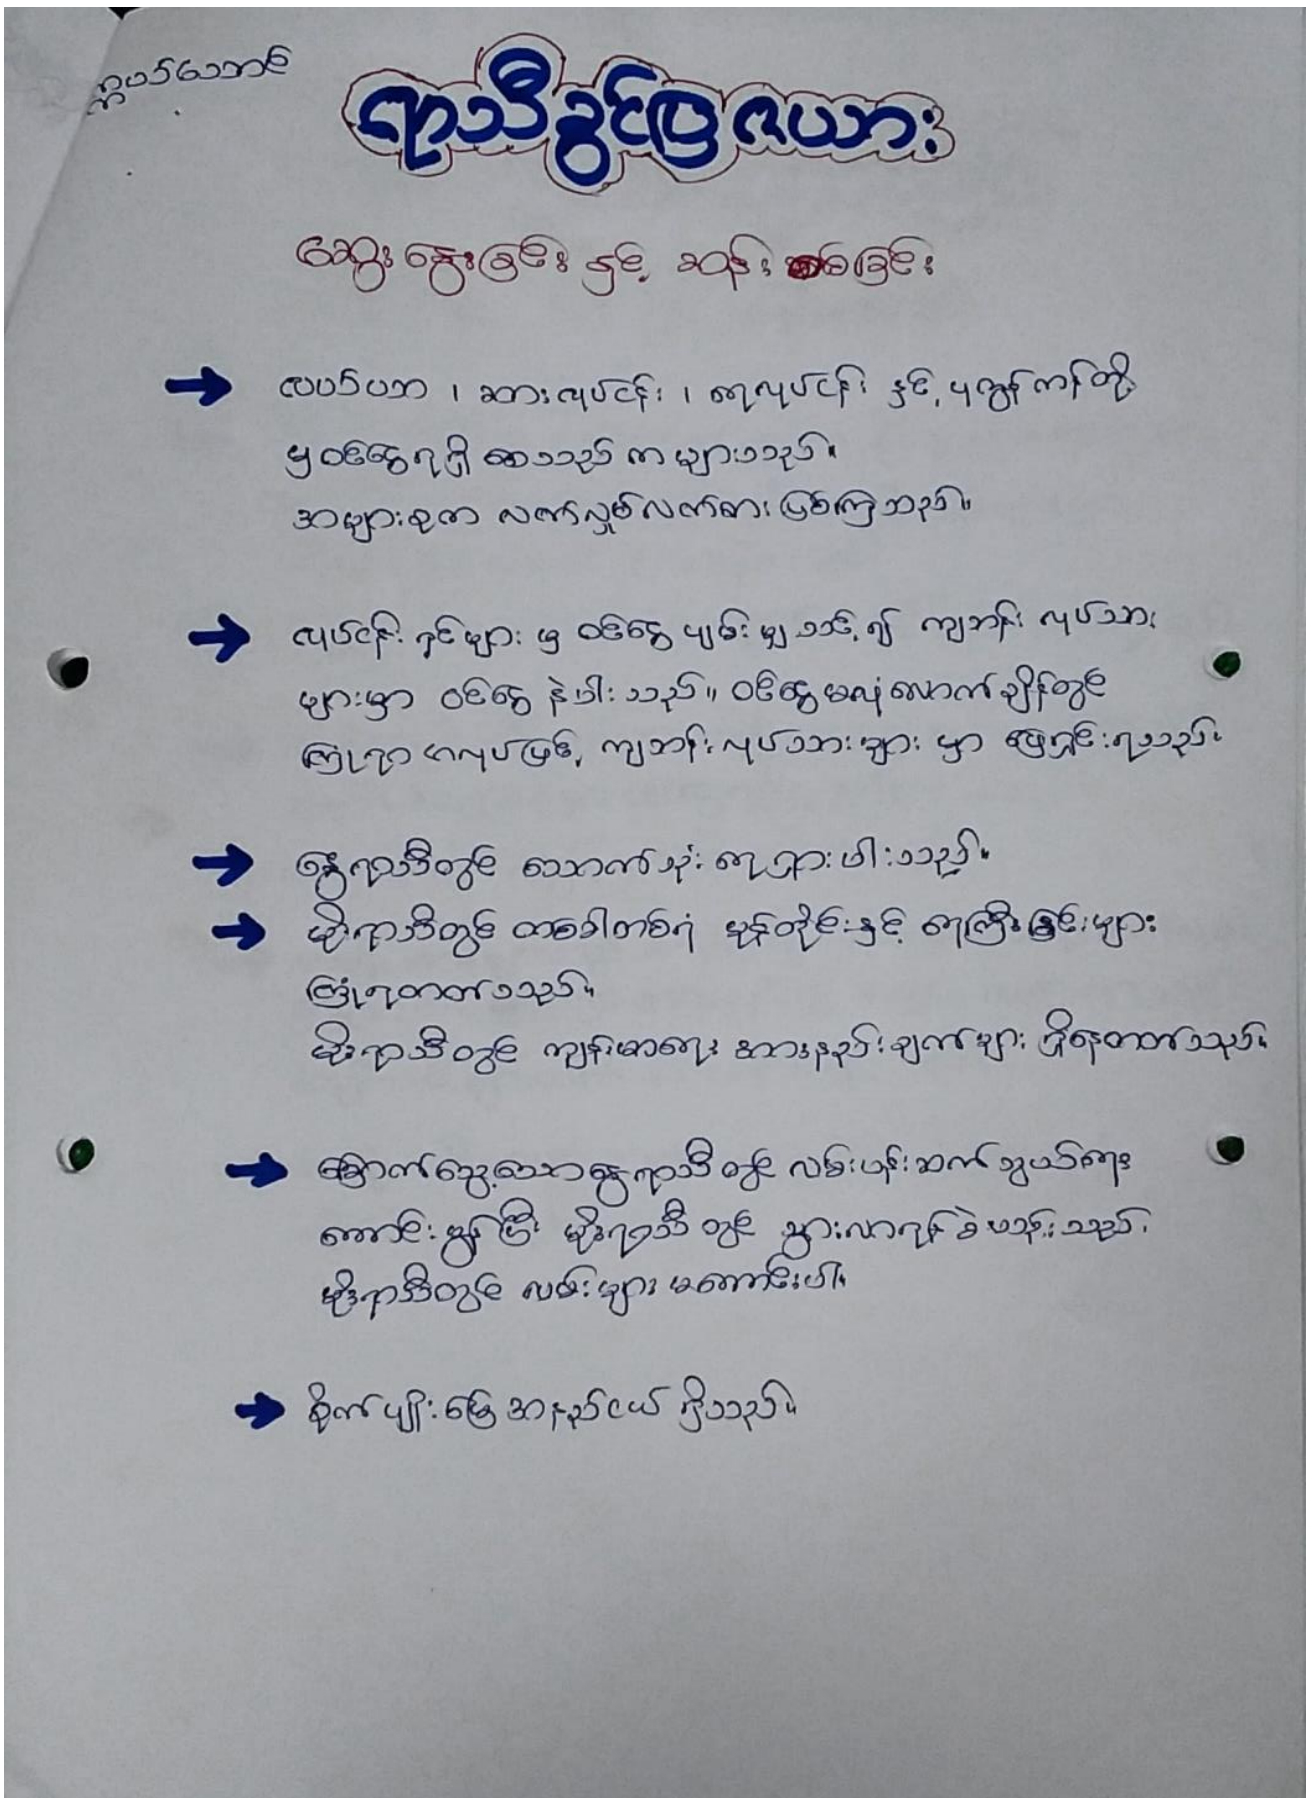 ရာသီခွင်ပြဇယား
ဆွေးနွေးခြင်း နှင့် ဆန်းစစ်ခြင်း
လယ်ယာ ၊ ဆားလုပ်ငန်း ၊ ရေလုပ်ငန်း နှင့် ပုဇွန်ကန်တို့
မှ ဝင်ငွေရရှိ သောသည် က များသည်။
အများစုက လက်လှုပ်လက်စား ဖြစ်ကြသည်။
လုပ်ငန်း ရှင်များ မှ ဝင်ငွေ ပျမ်းမျှ သင့် ၍ ကျဘန်း လုပ်သား
များမှာ ဝင်ငွေ နဲပါးသည်။ ဝင်ငွေမလုံလောက်ချိန်တွင်
ကြုံရာကလုပ်ဖြင့် ကျဘန်းလုပ်သားများ မှာ ဖြေရှင်းရသည်။
နွေရာသီတွင် သောက်သုံး ရေရှားပါးသည်။
မိုးရာသီတွင် တစ်ခါတစ်ရံ မုန်တိုင်းနှင့် ရေကြီးခြင်းများ
ကြုံရတတ်သည်။
မိုးရာသီတွင် ကျန်းမာရေး အားနည်းချက်များ ရှိနေတတ်သည်။
ခြောက်သွေ့သောနွေရာသီတွင် လမ်းပန်းဆက်သွယ်ရေး
ကောင်းမွန်ပြီး မိုးရာသီတွင် သွားလာရန်ခဲယဉ်းသည်။
မိုးရာသီတွင် လမ်းများ မကောင်းပါ။
စိုက်ပျိုးမြေအနည်ငယ် ရှိသည်။